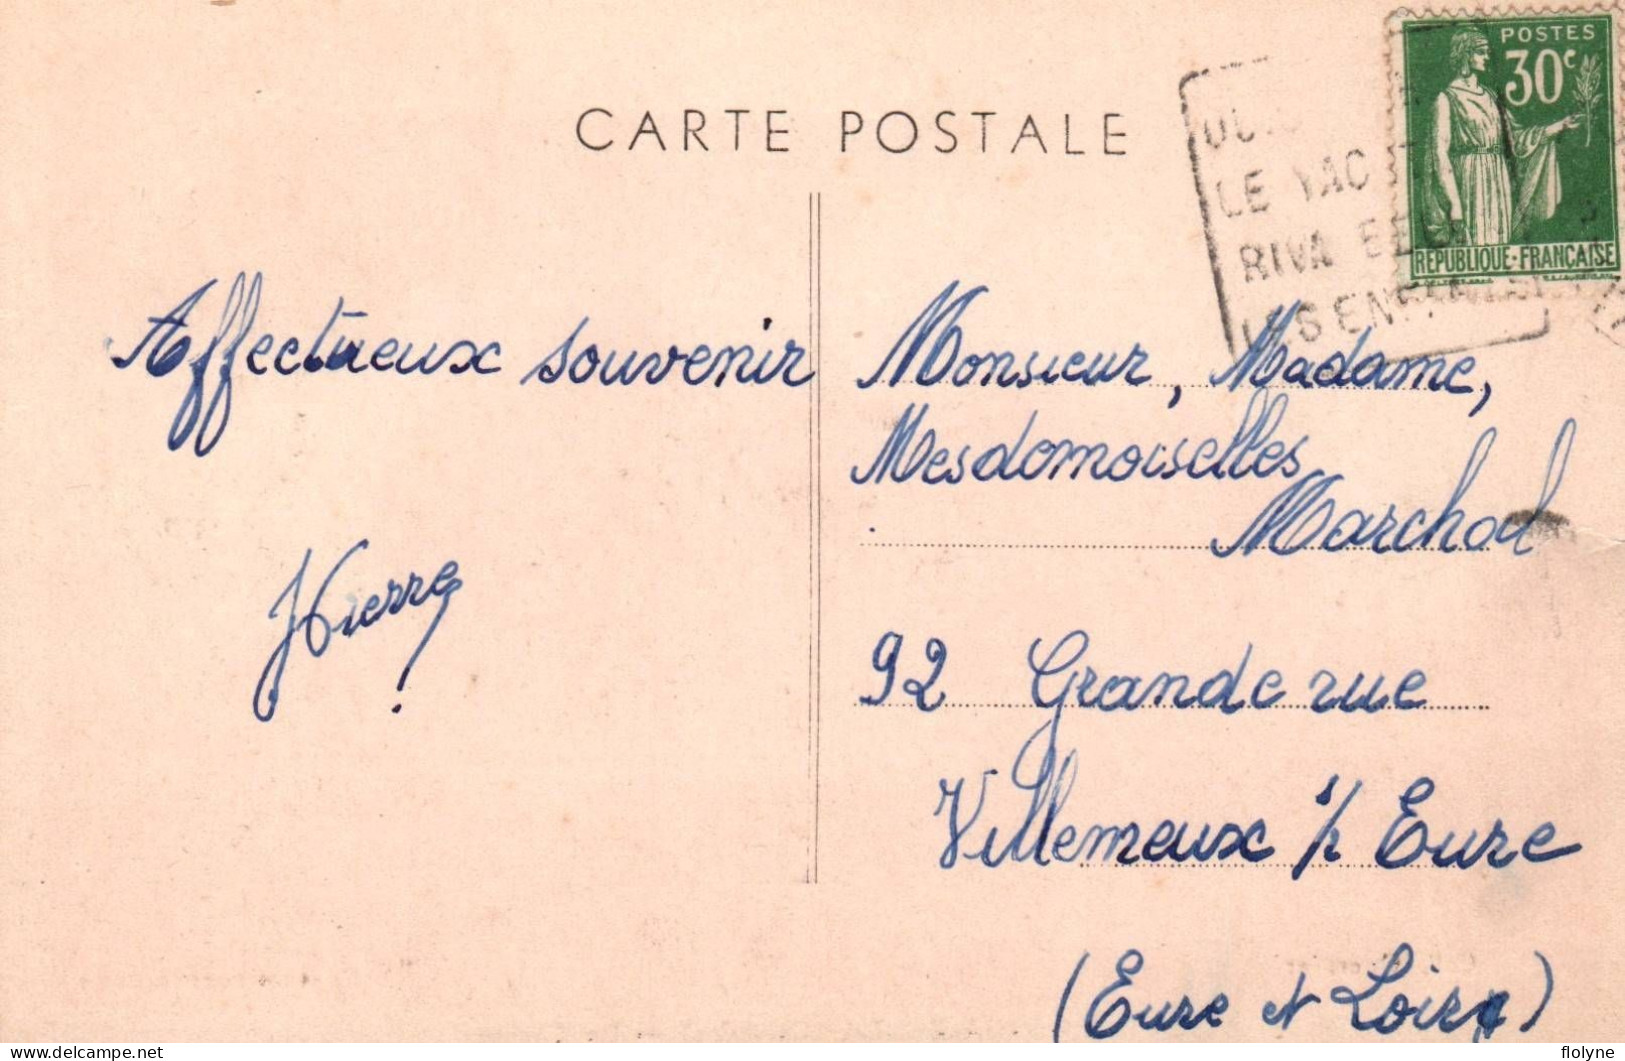 CARTE POSTALE
POSTES
30c
REPUBLIQUE·FRANÇAISE
LE YAC
RIVA BEL
LES ENFANTS
Affectueux souvenir
Pierre
Monsieur, Madame,
Mesdemoiselles
Marchod
92 Grande rue
Villemeux s/r Eure
(Eure et Loir)
delcampe.net
flolyne